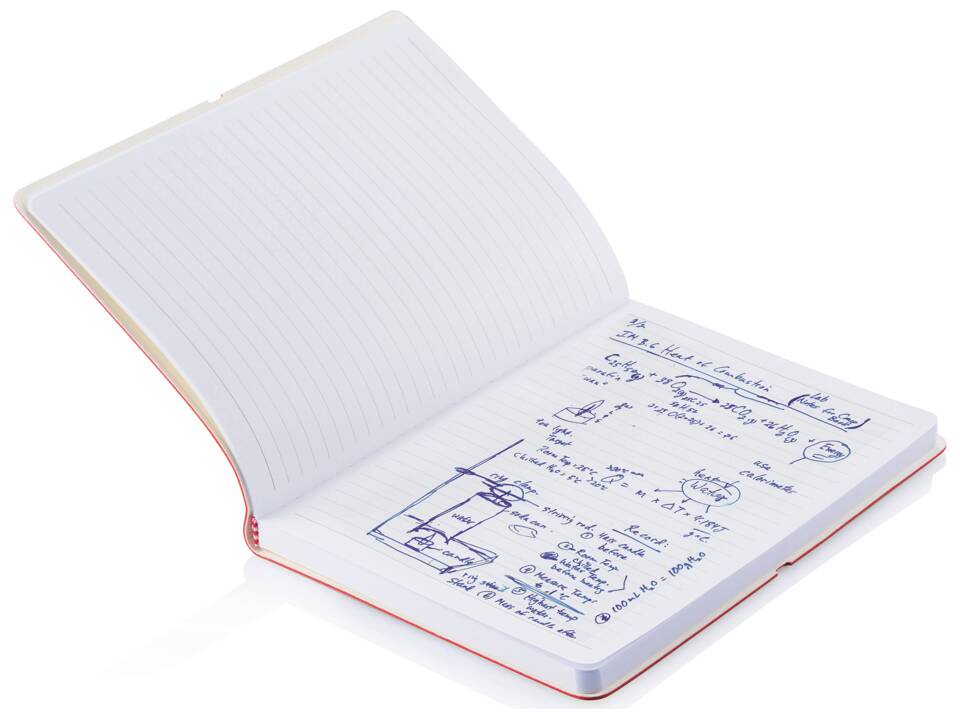 3/2
IM 3.6 Heat of Combustion
Lab
Notes for Comp Book
C25H52(s) + 38 O2(g) → 25CO2(g) + 26H2O(g) + Energy
paraffin
"wax"
tea light
Target
Room Temp = 25°C
Chilled H2O = 5°C
use
calorimeter
heat
Water
Q = M × ΔT × 4.184J
g°C
ring clamp
stirring rod
soda can
water
candle
ring stand
Record:
① Mass candle
before
② Room Temp
Chilled
Water Temp.
before heating
④ Measure Temp:
⑤ Highest temp
water.
Mass of candle after
100 mL H2O = 100g H2O